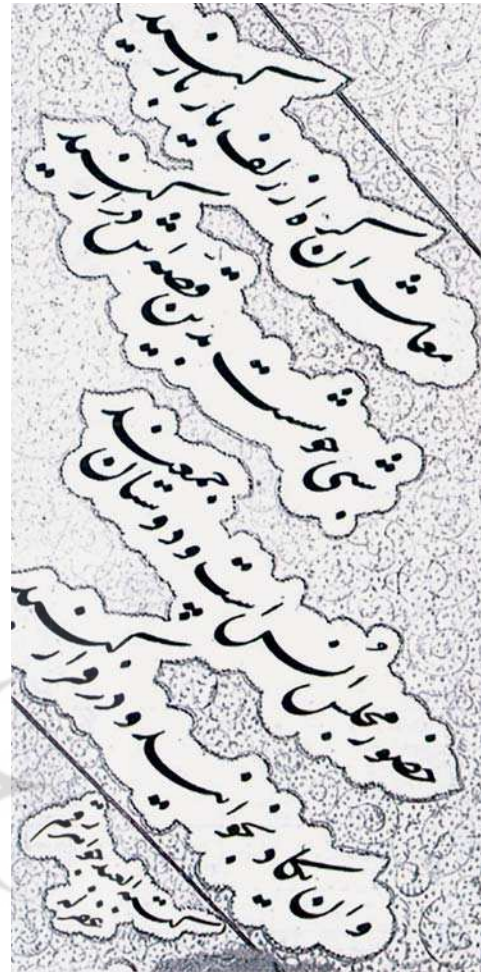 معاشران گره از زلف یار باز کنید
شبی خوشست بدین قصه اش دراز کنید
حضور مجلس اُنس است و دوستان جمعند
وان یکاد بخوانید و در فراز کنید
کتبه العبد جواهر رقم
غفر له